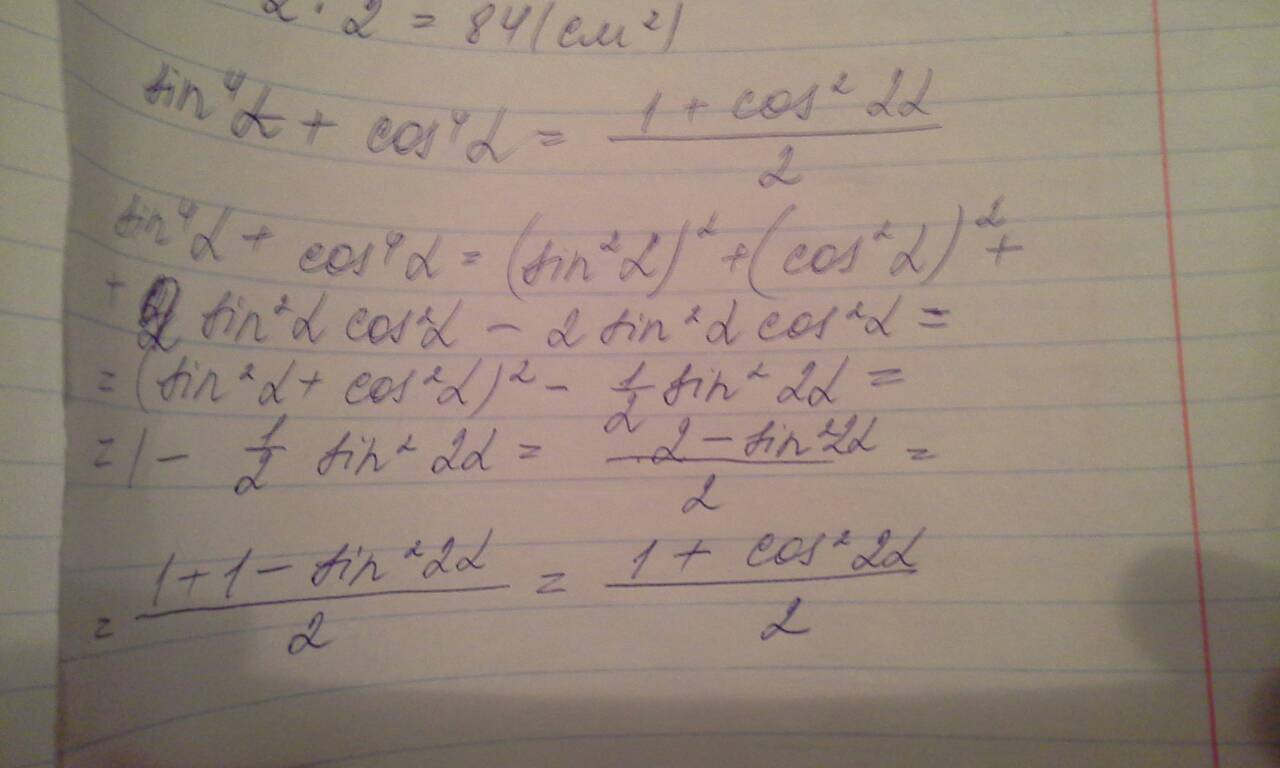 2 · 2 = 84 (см²)
sin⁴α + cos⁴α = (1 + cos² 2α)/2
sin⁴α + cos⁴α = (sin²α)² + (cos²α)² +
+ 2 sin²α cos²α - 2 sin²α cos²α =
= (sin²α + cos²α)² - 1/2 sin² 2α =
= 1 - 1/2 sin² 2α = (2 - sin² 2α)/2 =
= (1 + 1 - sin² 2α)/2 = (1 + cos² 2α)/2